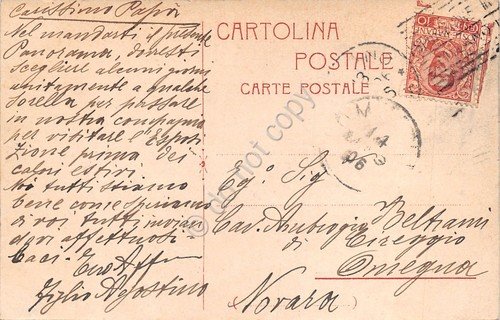 Carissimo Papà
Nel mandarti il presente
Panorama, dovresti
scegliere alcuni giorni
unitamente a qualche
sorella per passare
in nostra compagnia
per visitare l'Esposi
zione prima dei
calori estivi
Noi tutti stiamo
bene così speriamo
di voi tutti, invian
dovi affettuosi
baci. Tuo Aff
figlio Agostino
CARTOLINA
POSTALE
CARTE POSTALE
Eg. Sig.
Cav. Ambrogio Beltrami
di Cireggio
Omegna
Novara
do not copy